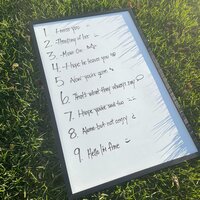 1. I miss you
2. Thinking of her
3. Move On
4. I hope he leaves you
5. Now you're gone
6. That's what they always say
7. Hope you're sad too
8. Alone but not lonely
9. Hello I'm fine